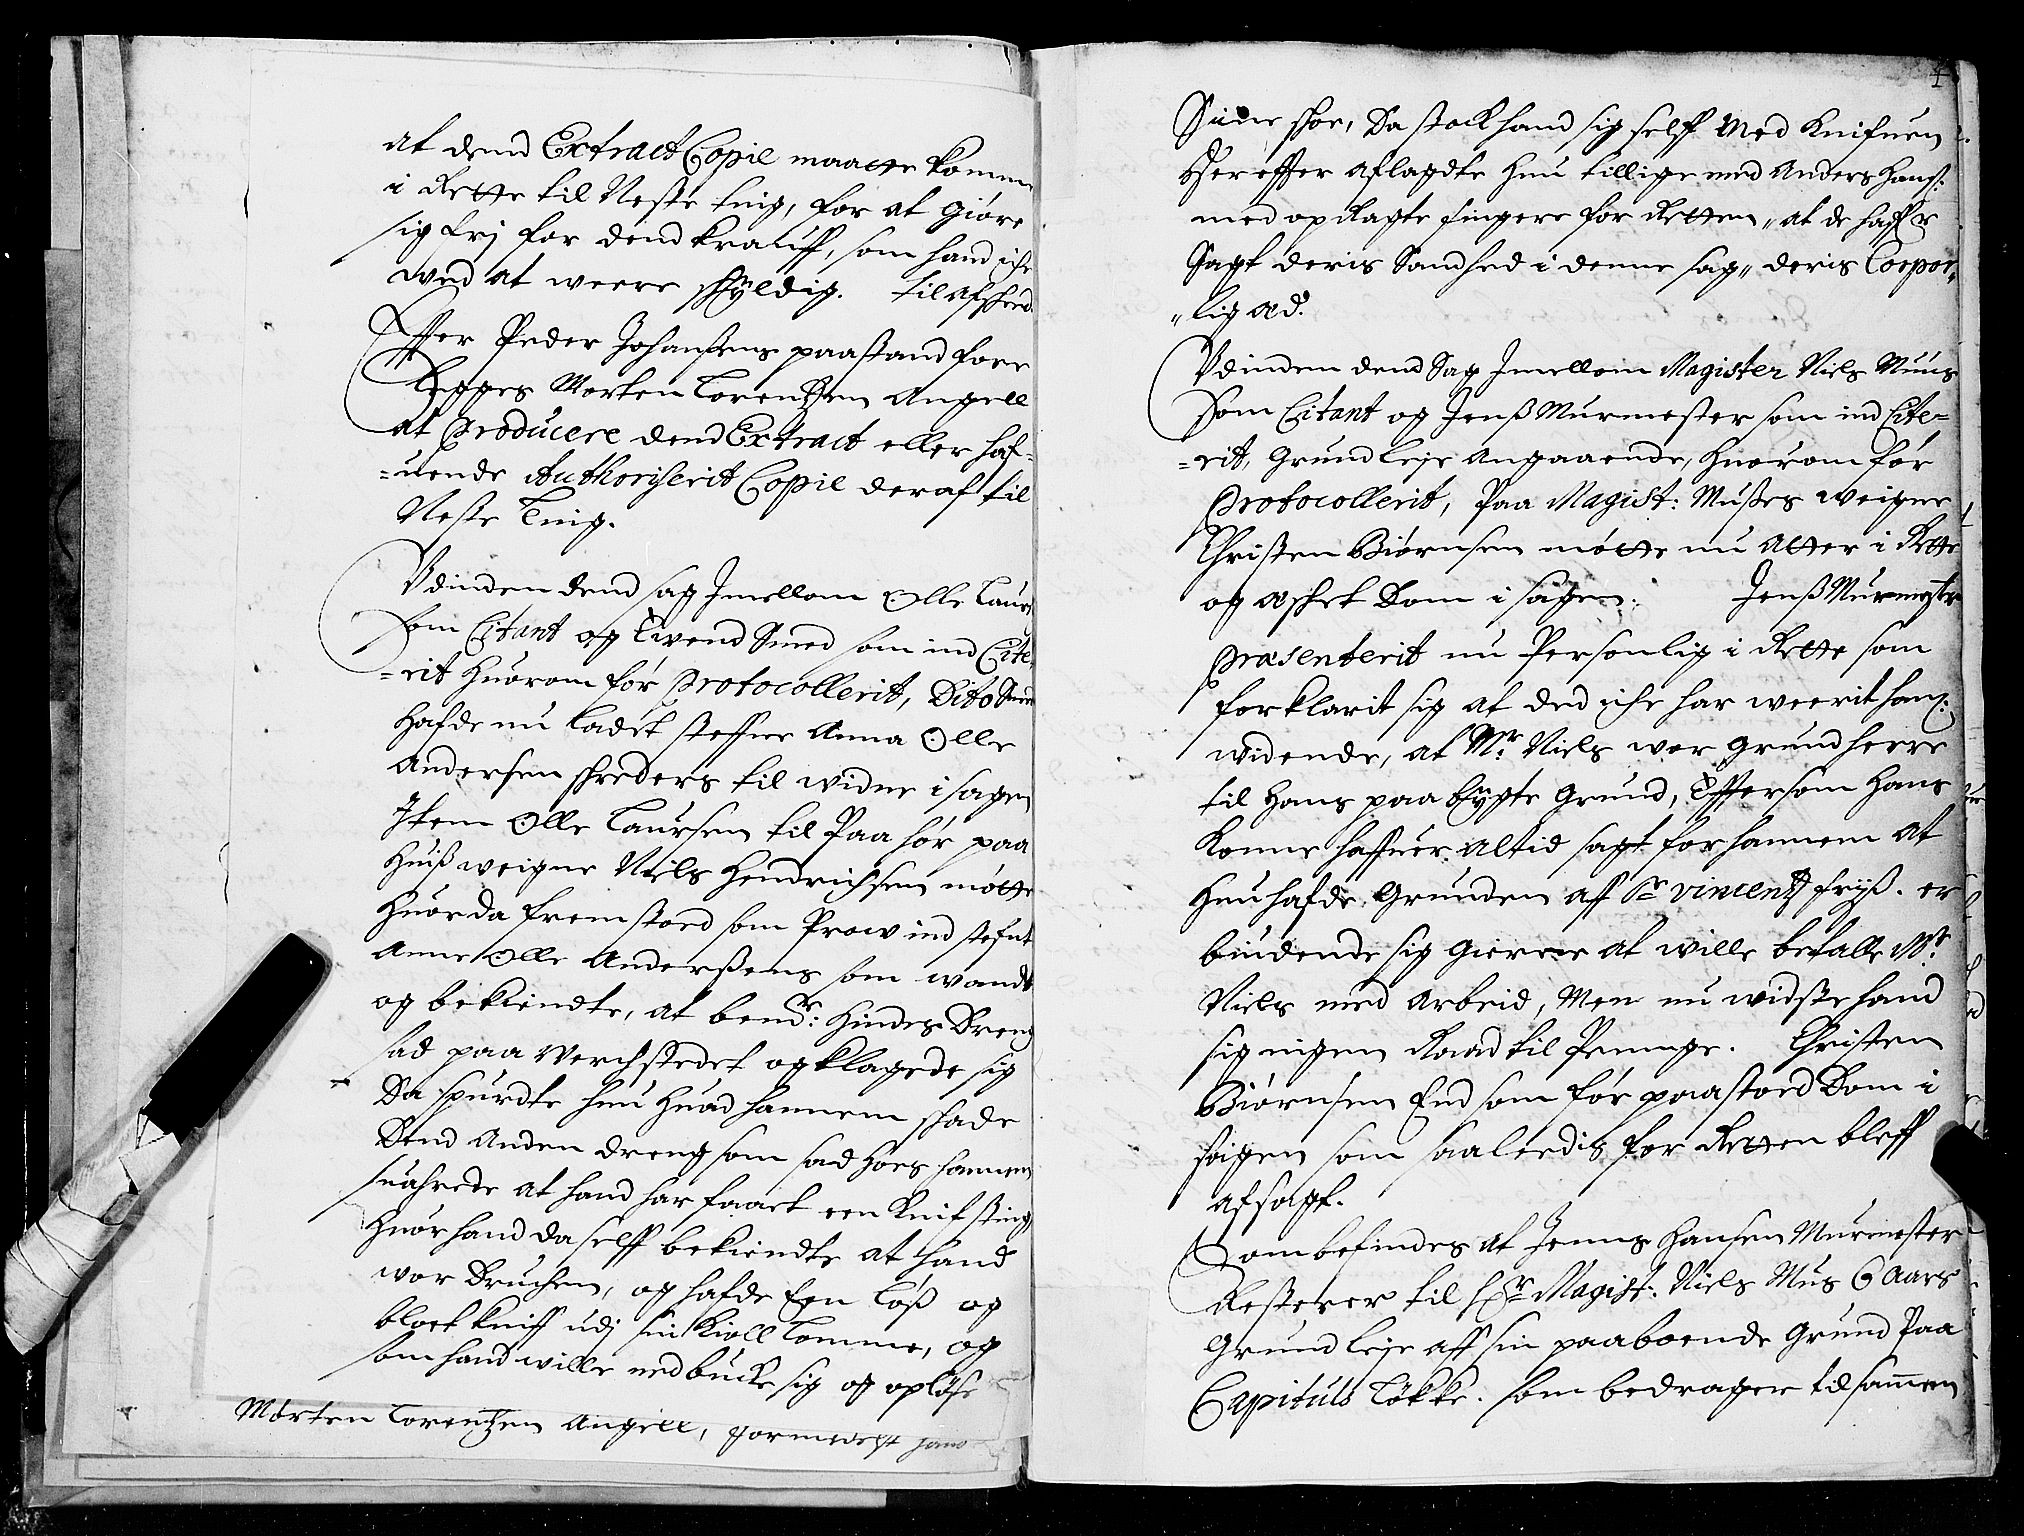 at dend Extract Copie maatte komme
i Rette til Neste ting, for at giøre
sig frj for dend krauff, som hand iche
wed at weere schyldig. til afscheed.
Effter Peder Johanßens paastand fore
Legges Morten Lorentzen Angell
at Producere dend Extract eller haf-
=uende Authoriserit Copie deraf til
Neste Ting.
Vdinden dend sag Jmellom Olle Laurs
som Citant og Swend Smed som ind Cite
=rit huorom før Protocollerit, Dito Smed
hafde nu ladet steffne Anna Olle
Andersen schreders til widne i sagen
Jtem Olle Laursen til Paa hør paa
huiß weigne Niels Hendrichsen møtte
huorda fremstoed som Prow ind stefnt
Anne Olle Anderßens som wandt
og bekiendte, at bend:r hindes dreng
sad paa Werchstedet og klagede sig
Da spurdte hun huad hannem schade
Dend Anden dreng som sad hoes hannem
suahrede at hand har faaet een knif sting
huor hand da selff bekiendte at hand
war Druchen, og hafde Een Løß og
bloet kniff udj sin kioll Lomme, og
som hand wille ned bucke sig og opløse
Morten Lorentzen Angell, formedelst hans
4
Siine schoe, Da stack hand sig selff med knifuen
Hereffter aflagdte hun tillige med Anders Hans:
med op Ragte fingere for Retten, at de haffr
Sagt deris Sandhed i denne sag, deris Corpor,,
,,lig æd.
Vdinden dend Sag Jmellom Magister Niels Muus
som Citant og Jenß Murmester som ind Cite=
=rit, Grundleje Angaaende, huorom før
Protocollerit, Paa Magist: Mußes weigne
Christen Biørnsen møtte nu Atter i Rette
og æschet Dom i sagen. Jenß Murmester
Præsenterit nu Personlig i Rette som
forklarit sig at ded iche har weerit hans
widende, at Mr. Niels war Grundherre
til hans paa bygte Grund, Effter som hans
konne haffuer altid sagt for hannem at
hun hafde Grunden aff Sr Vincentz friiß. er
biudende sig gierne at wille betalle Mr.
Niels med Arbeid, Men nu widste hand
sig ingen Raad til Penninge. Christen
Biørnsen End som før paastoed Dom i
sagen som saaleedis for Retten bleff
afsagt.
Som befindes at Jenns Hansen Murmester
Resterer til Hr Magist: Niels Mus 6 Aars
Grundleje aff sin paaboende Grund Paa
Capituls Løkke. som bedrager tilsammen